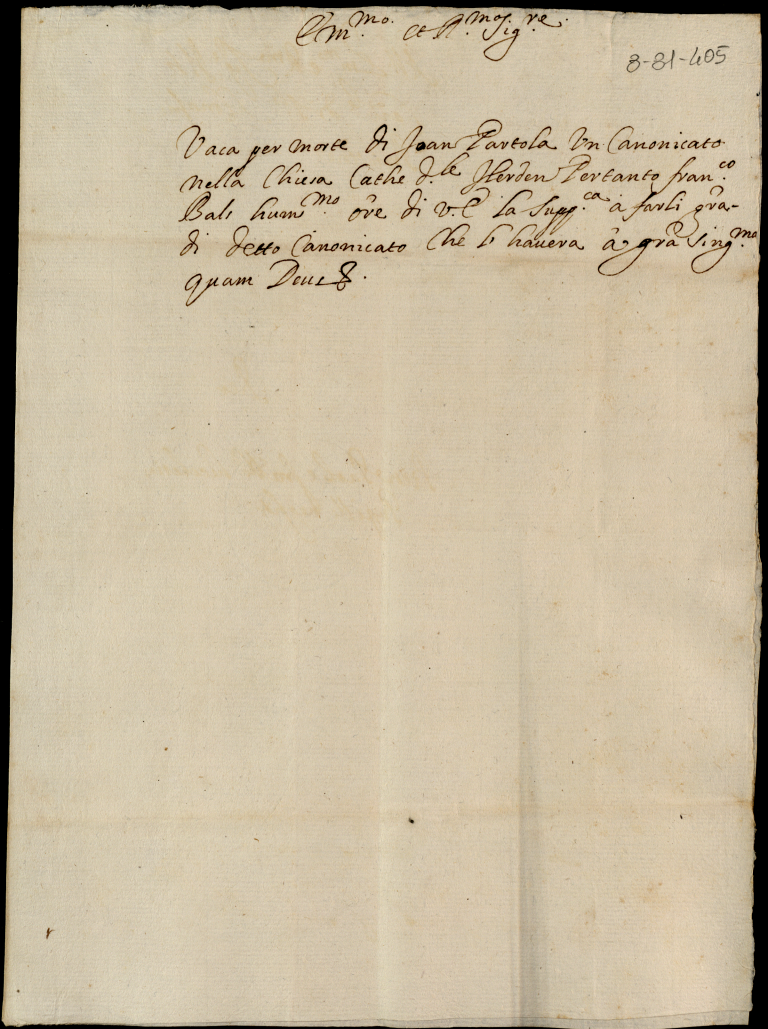 Em.mo et R.mo Sig.re
8-81-405
Vaca per morte di Joan Partola Un Canonicato
nella Chiesa Cathe d.le Jlerden Pertanto fran.co
Bals hum.mo ore di V.E la supp.ca a farli gra-
di detto Canonicato Che lo havera à grã sing.ma
quam Deus &.